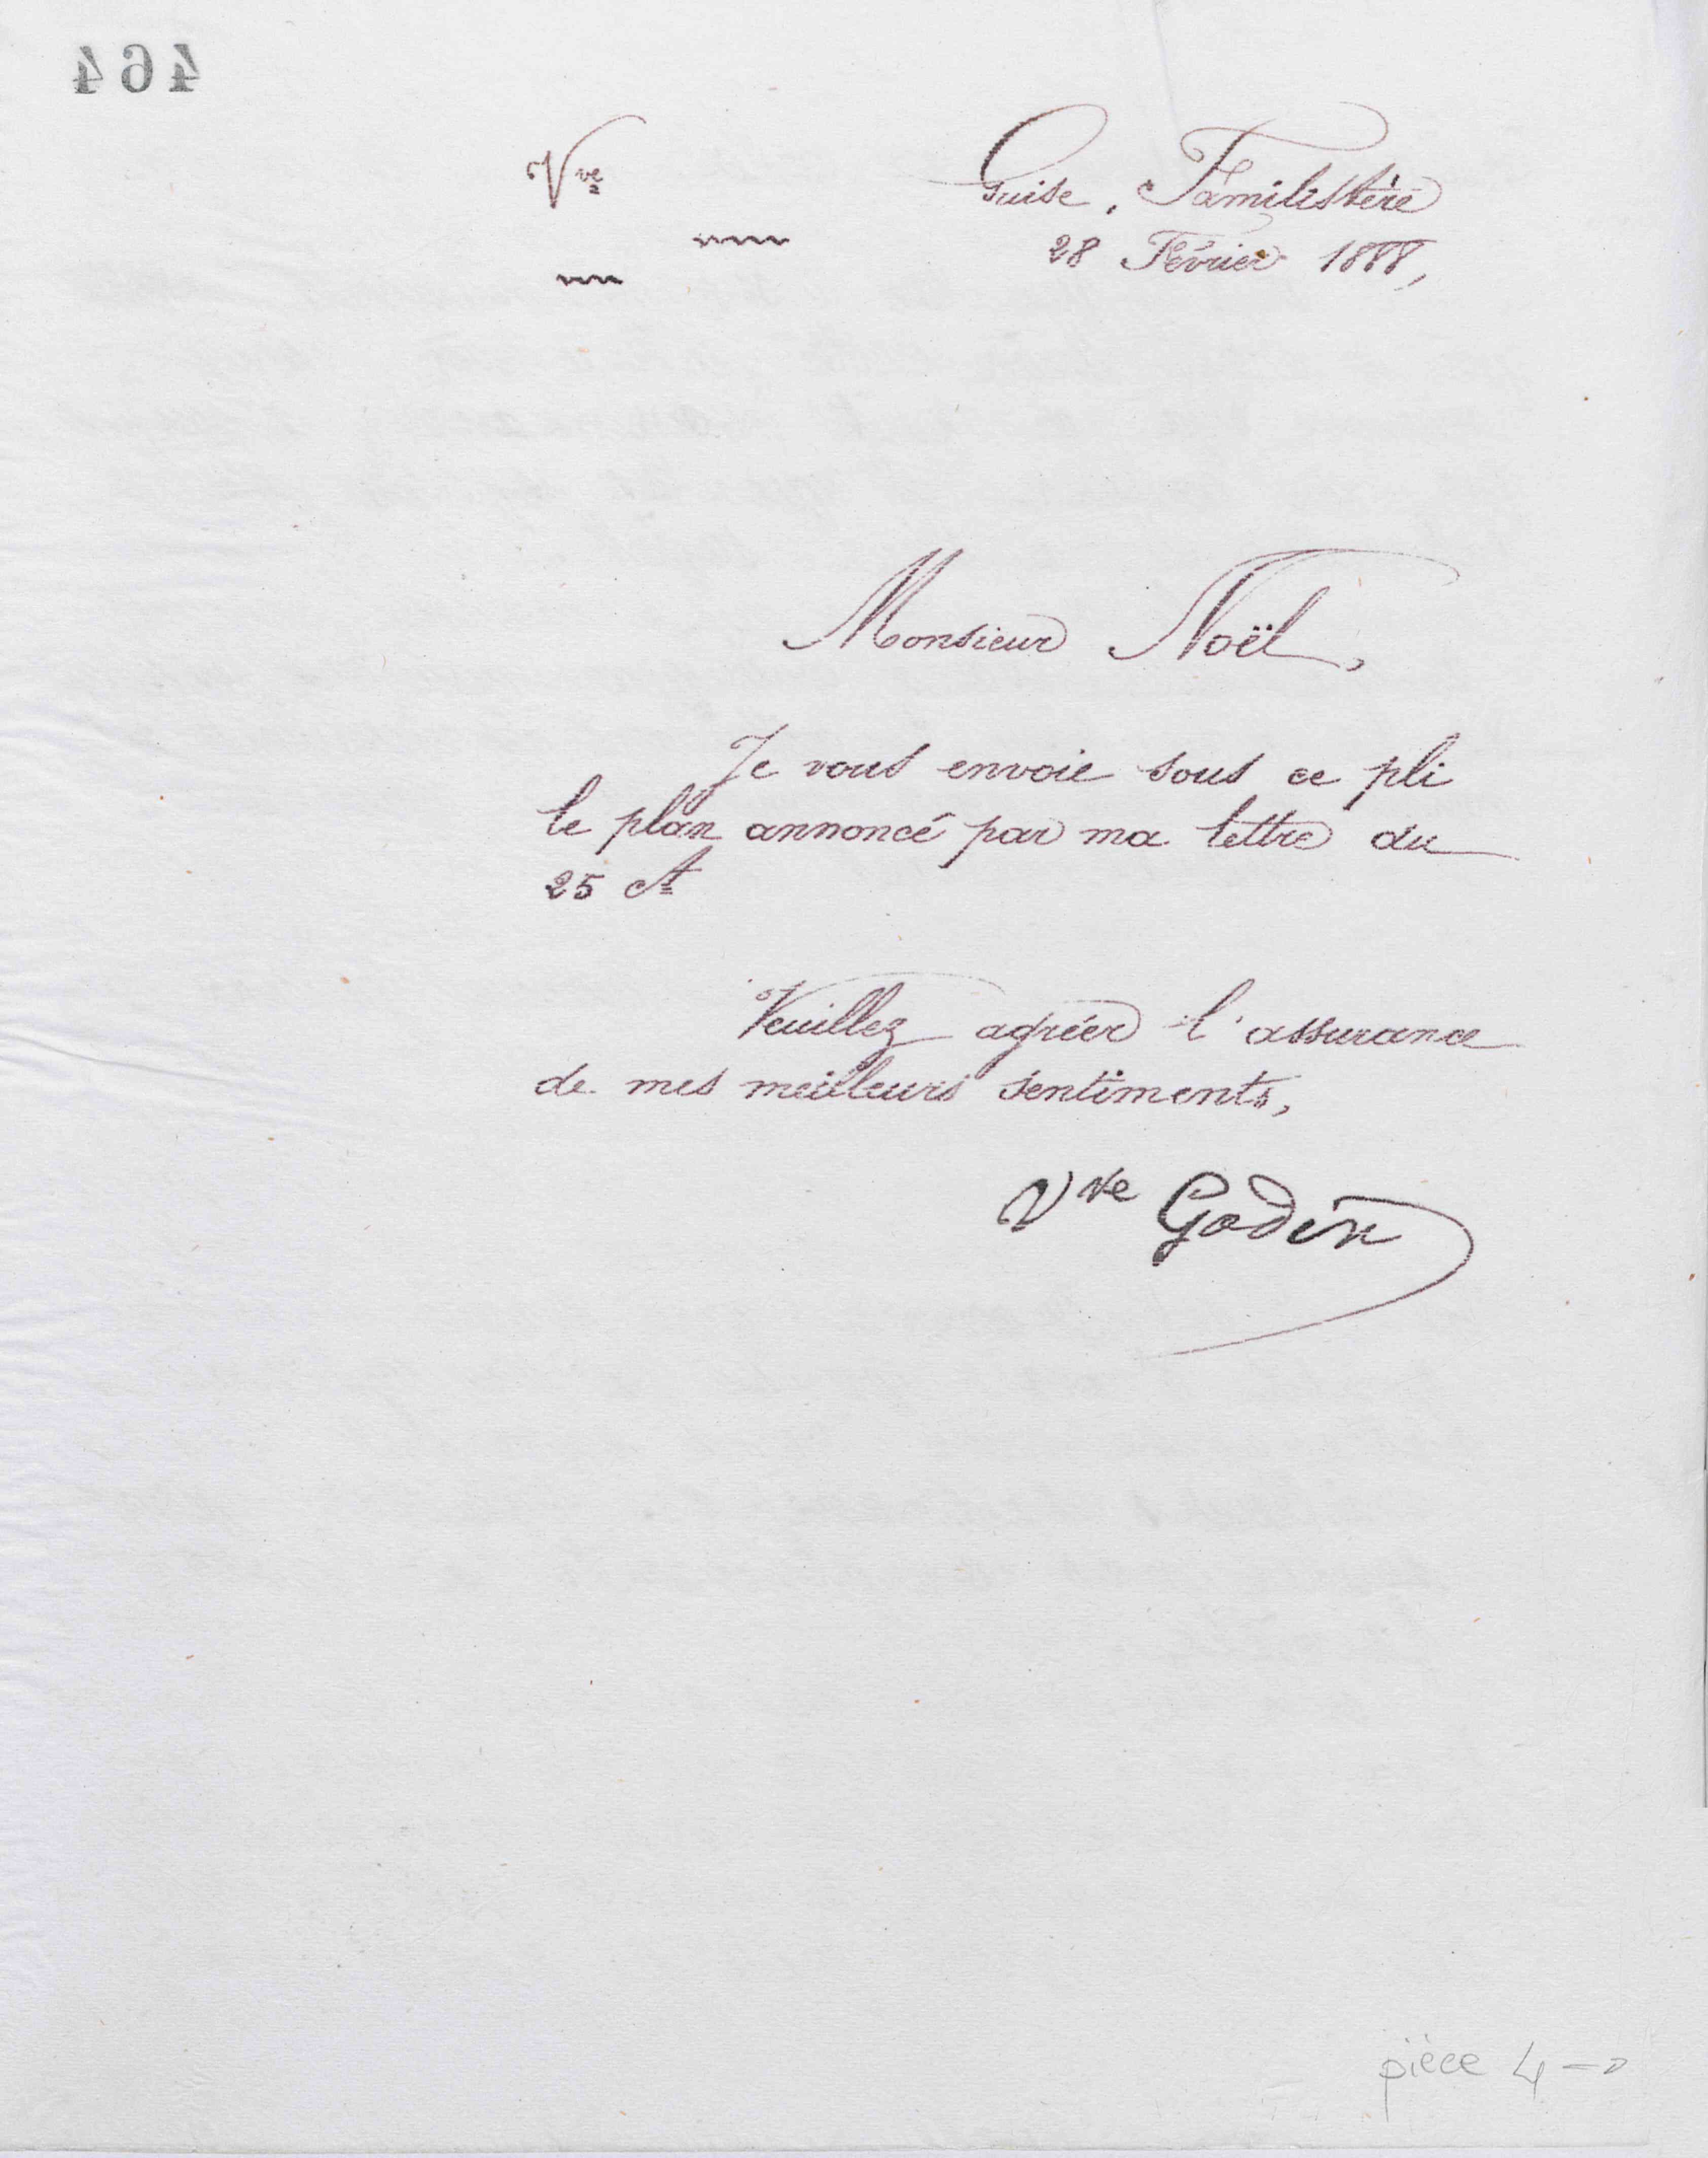 464
Vve
Guise, Familistère
28 Février 1888,
Monsieur Noël,
Je vous envoie sous ce pli
le plan annoncé par ma lettre du
25 ct
Veuillez agréer l'assurance
de mes meilleurs sentiments,
Vve Godin
pièce 4